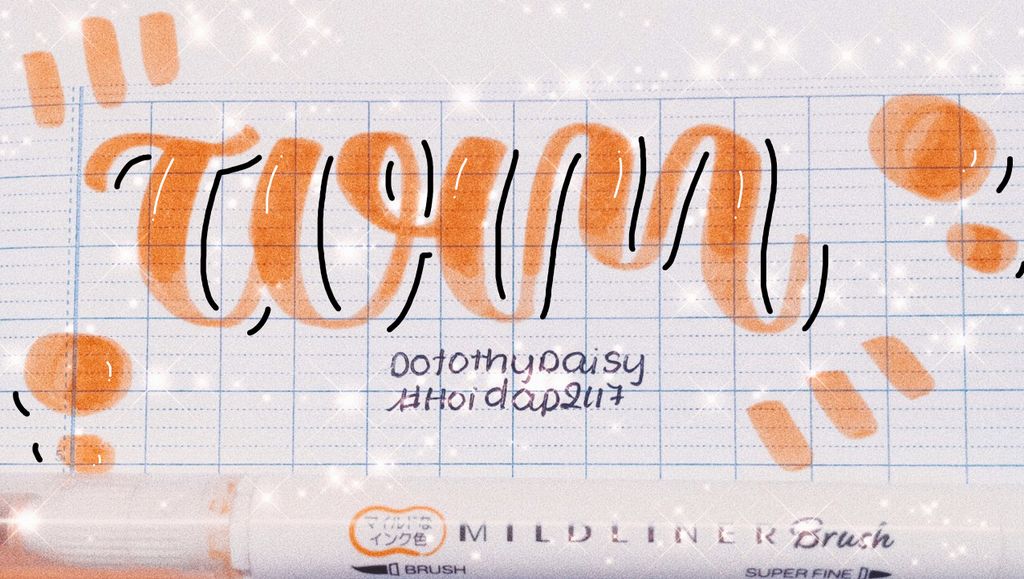 Tom
DotothyDaisy
#Hoidap247
マイルドな
インク色
MILDLINER Brush
BRUSH
SUPER FINE